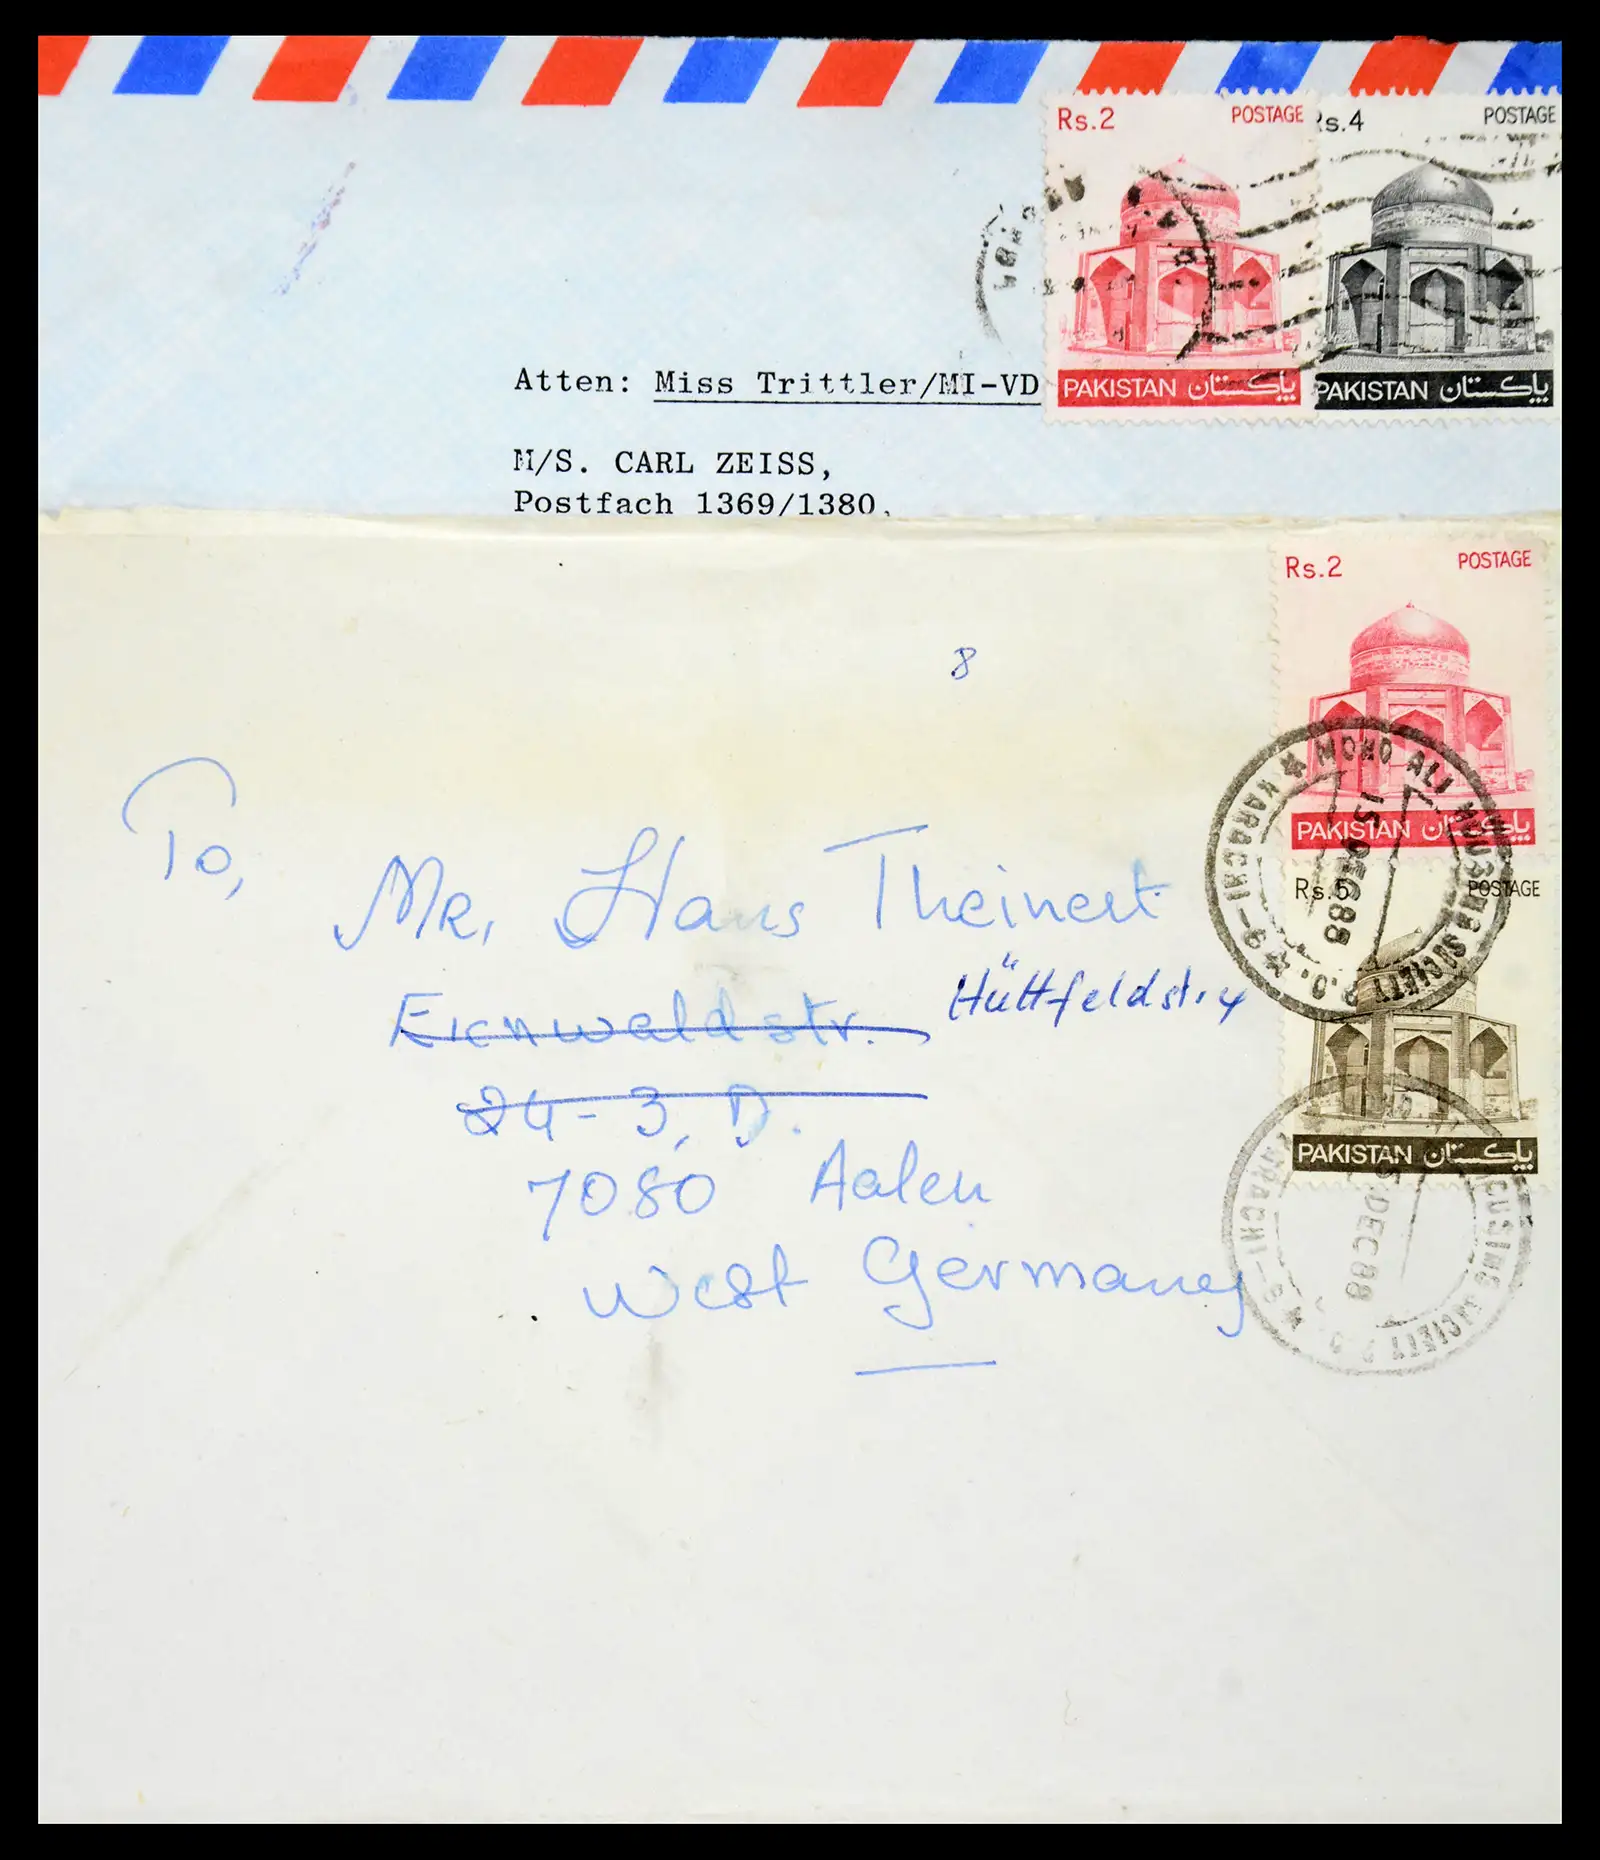 Rs.2 POSTAGE
Rs.4 POSTAGE
PAKISTAN پاکستان
PAKISTAN پاکستان
Atten: Miss Trittler/MI-VD
M/S. CARL ZEISS,
Postfach 1369/1380,
Rs.2 POSTAGE
8
MOHD ALI HOUSING SOCIETY P.O.
KARACHI-9-
15 DEC 88
PAKISTAN پاکستان
Rs.5 POSTAGE
To,
Mr. Hans Theinert
Hüttfeldstr. 4
24-3, D.
7080 Aalen
West Germany
PAKISTAN پاکستان
HOUSING SOCIETY P.O.
KARACHI-9
15 DEC 88